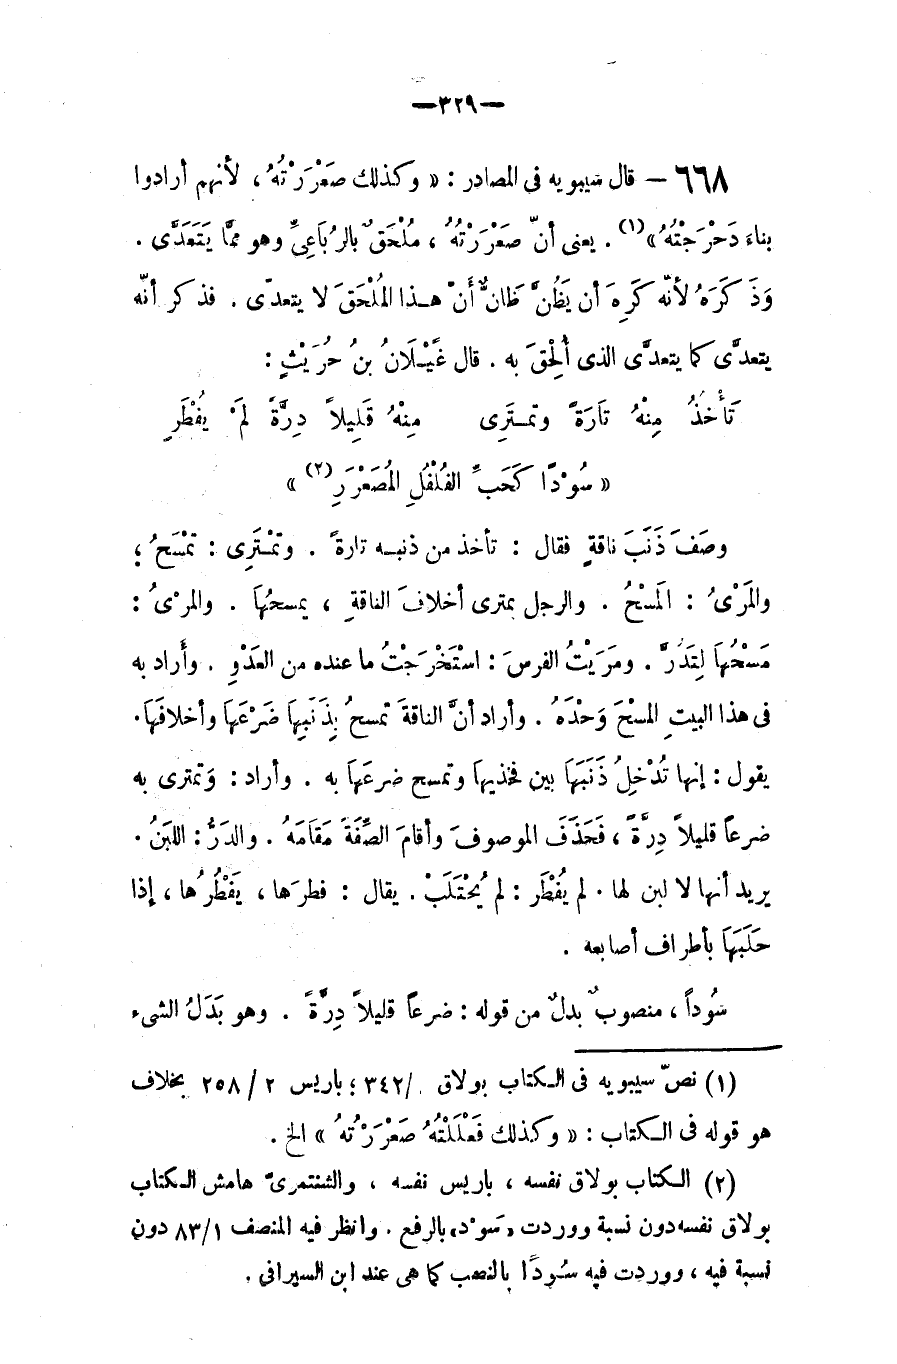 —٣٢٩—
٦٦٨ — قال سيبويه فى المصادر : « وكذلك صَعْرَرْتُهُ ، لأنهم أرادوا
بناءَ دَحْرَجْتُهُ » (١) . يعنى أنّ صَعْرَرْتُهُ ، مُلْحَقٌ بالرُبَاعِىِّ وهو ممَّا يَتَعَدَّى .
وَذَكَرَهُ لأنّه كَرِهَ أن يَظُنَّ ظانٌّ أَنّ هـذا المُلْحَقَ لا يتعدّى . فذكر أنّه
يتعدَّى كما يتعدَّى الذى أُلْحِقَ به . قال غَيْـلَانُ بنُ حُرَيْثٍ :
تَأْخُذُ مِنْهُ تَارَةً وتمـتَرِى مِنْهُ قَلِيلاً دِرَّةً لَمْ يُفْطَرِ
« سُوْدًا كَحَبِّ الفُلْفُلِ المُصَعْرَرِ (٢) »
وصَفَ ذَنَبَ ناقةٍ فقال : تأخذ من ذنبـه تارةً . وتمْـتَرِى : تَمْسَحُ ؛
والمَرْىُ : المَسْحُ . والرجل يمترى أخلافَ الناقةِ ، يمسحُهَا . والمرْىُ :
مَسْحُهَا لِتَدُرَّ . ومَرَيْتُ الفرسَ : اسْتَخْرَجْتُ ما عنده من العَدْوِ . وأَراد به
فى هذا البيتِ المسْحَ وَحْدَهُ . وأراد أنَّ الناقةَ تمسحُ بِذَنَبِهَا ضَرْعَهَا وأخلافَهَا .
يقول : إنها تُدْخِلُ ذَنَبَهَا بين فخذيها وتمسح ضرعَهَا به . وأراد : وَتمترى به
ضرعاً قليلاً دِرَّةً ، فَحَذَفَ الموصوفَ وأقامَ الصِّفَةَ مَقَامَهُ . والدَرُّ : اللبَنُ .
يريد أنها لا لبن لها . لم يُفْطَرِ : لم يُحْتَلَبْ . يقال : فطرَها ، يَفْطُرُها ، إذا
حَلَبَهَا بأطراف أصابعه .
سُوداً ، منصوبٌ بدلٌ من قوله : ضرعاً قليلاً دِرَّةً . وهو بَدَلُ الشىء
(١) نصّ سيبويه فى الـكتاب بولاق /٣٤٢ ؛ باريس ٢ / ٢٥٨ بخلاف
هو قوله فى الـكتاب : « وكذلك فَعْلَلْتُهُ صَعْرَرْتُهُ » الخ .
(٢) الـكتاب بولاق نفسه ، باريس نفسه ، والشنتمرىّ هامش الـكتاب
بولاق نفسه دون نسبة ووردت «سَوْد» بالرفع . وانظر فيه المنصف ٨٣/١ دون
نسبة فيه ، ووردت فيه سُودًا بالنصب كما هى عند ابن السيرافى .